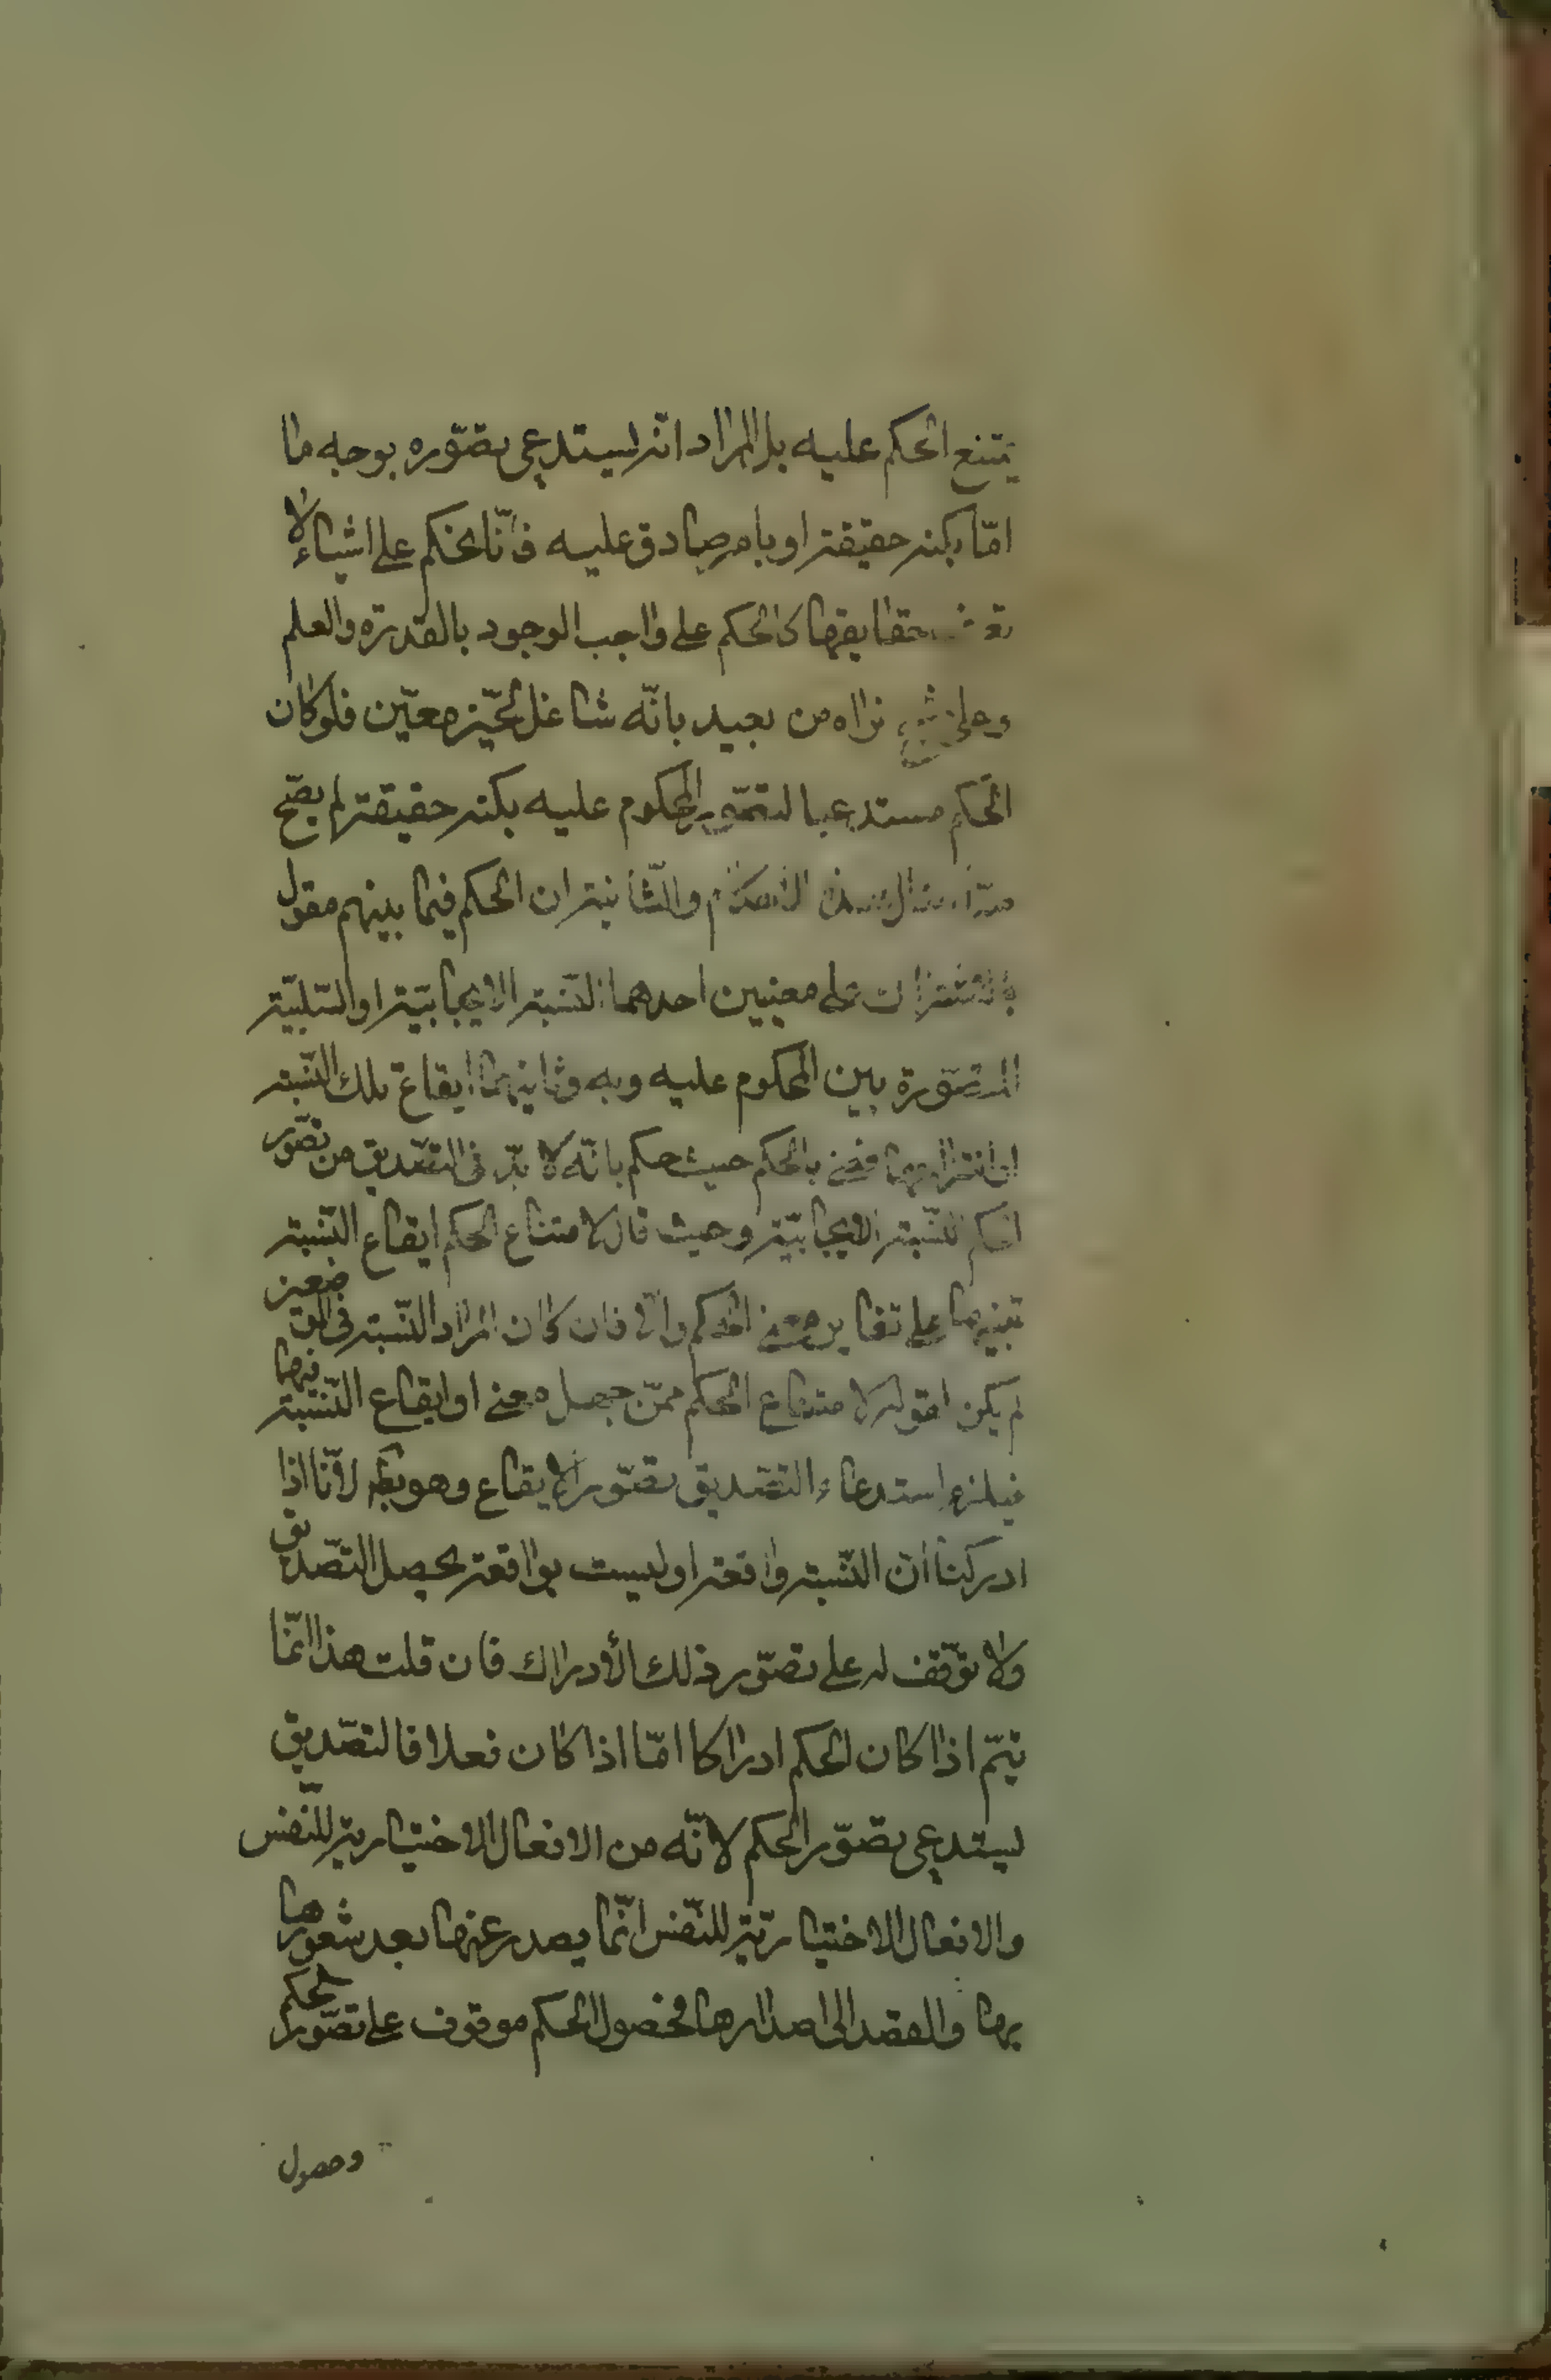 يمتنع الحكم عليه بل المراد انه يستدعى تصوّره بوجه ما
امّا بكنه حقيقته او بامر صادق عليه فانّا نحكم على اشياء لا
نعرف حقايقها كالحكم على واجب الوجود بالقدرة والعلم
وعلى شبح نراه من بعيد بانّه شاغل لحيّز معيّن فلو كان
الحكم مستدعيا لتصوّر المحكوم عليه بكنه حقيقته لم يصحّ
منّا امثال هذه الاحكام والثّانية ان الحكم فيما بينهم مقول
بالاشتراك على معنيين احدهما النّسبة الايجابيّة او السّلبيّة
المتصوّرة بين المحكوم عليه وبه وثانيهما ايقاع تلك النّسبة
او انتزاعها فعنى بالحكم حيث حكم بانّه لا بدّ فى التّصديق من تصوّر
الحكم النّسبة الايجابيّة وحيث قال لامتناع الحكم ايقاع النّسبة
تنبيها على تغاير معنى الحكم والّا فان كان المراد النّسبة فى الموضعين
لم يكن لقوله لامتناع الحكم ممّن جهل معنى او ايقاع النّسبة فيهما
فيلزم استدعاء التّصديق تصوّر الايقاع وهو بط لانّا اذا
ادركنا انّ النّسبة واقعة او ليست بواقعة يحصل التّصديق
ولا توقّف له على تصوّر ذلك الأدراك فان قلت هذا انّما
يتمّ اذا كان الحكم ادراكا امّا اذا كان فعلا فالتصّديق
يستدعى تصوّر الحكم لانّه من الافعال الاختياريّة للنّفس
والافعال الاختياريّة للنّفس انّما يصدر عنها بعد شعورها
بها والقصد الى اصدارها فحصول الحكم موقوف على تصوّر الحكم
وحصول